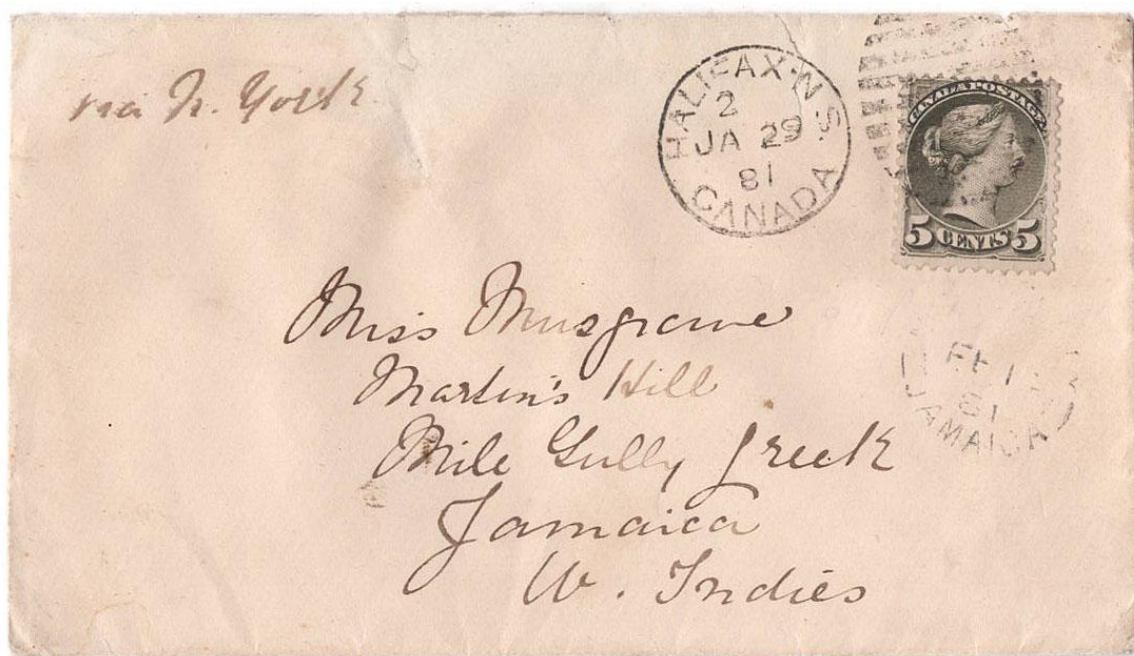 via N. York
HALIFAX·N.S.
2
JA 29
81
CANADA
CANADA POSTAGE
5 CENTS 5
Miss Musgrave
Martin's Hill
Mile Gully
Jamaica
W. Indies
81
JAMAICA